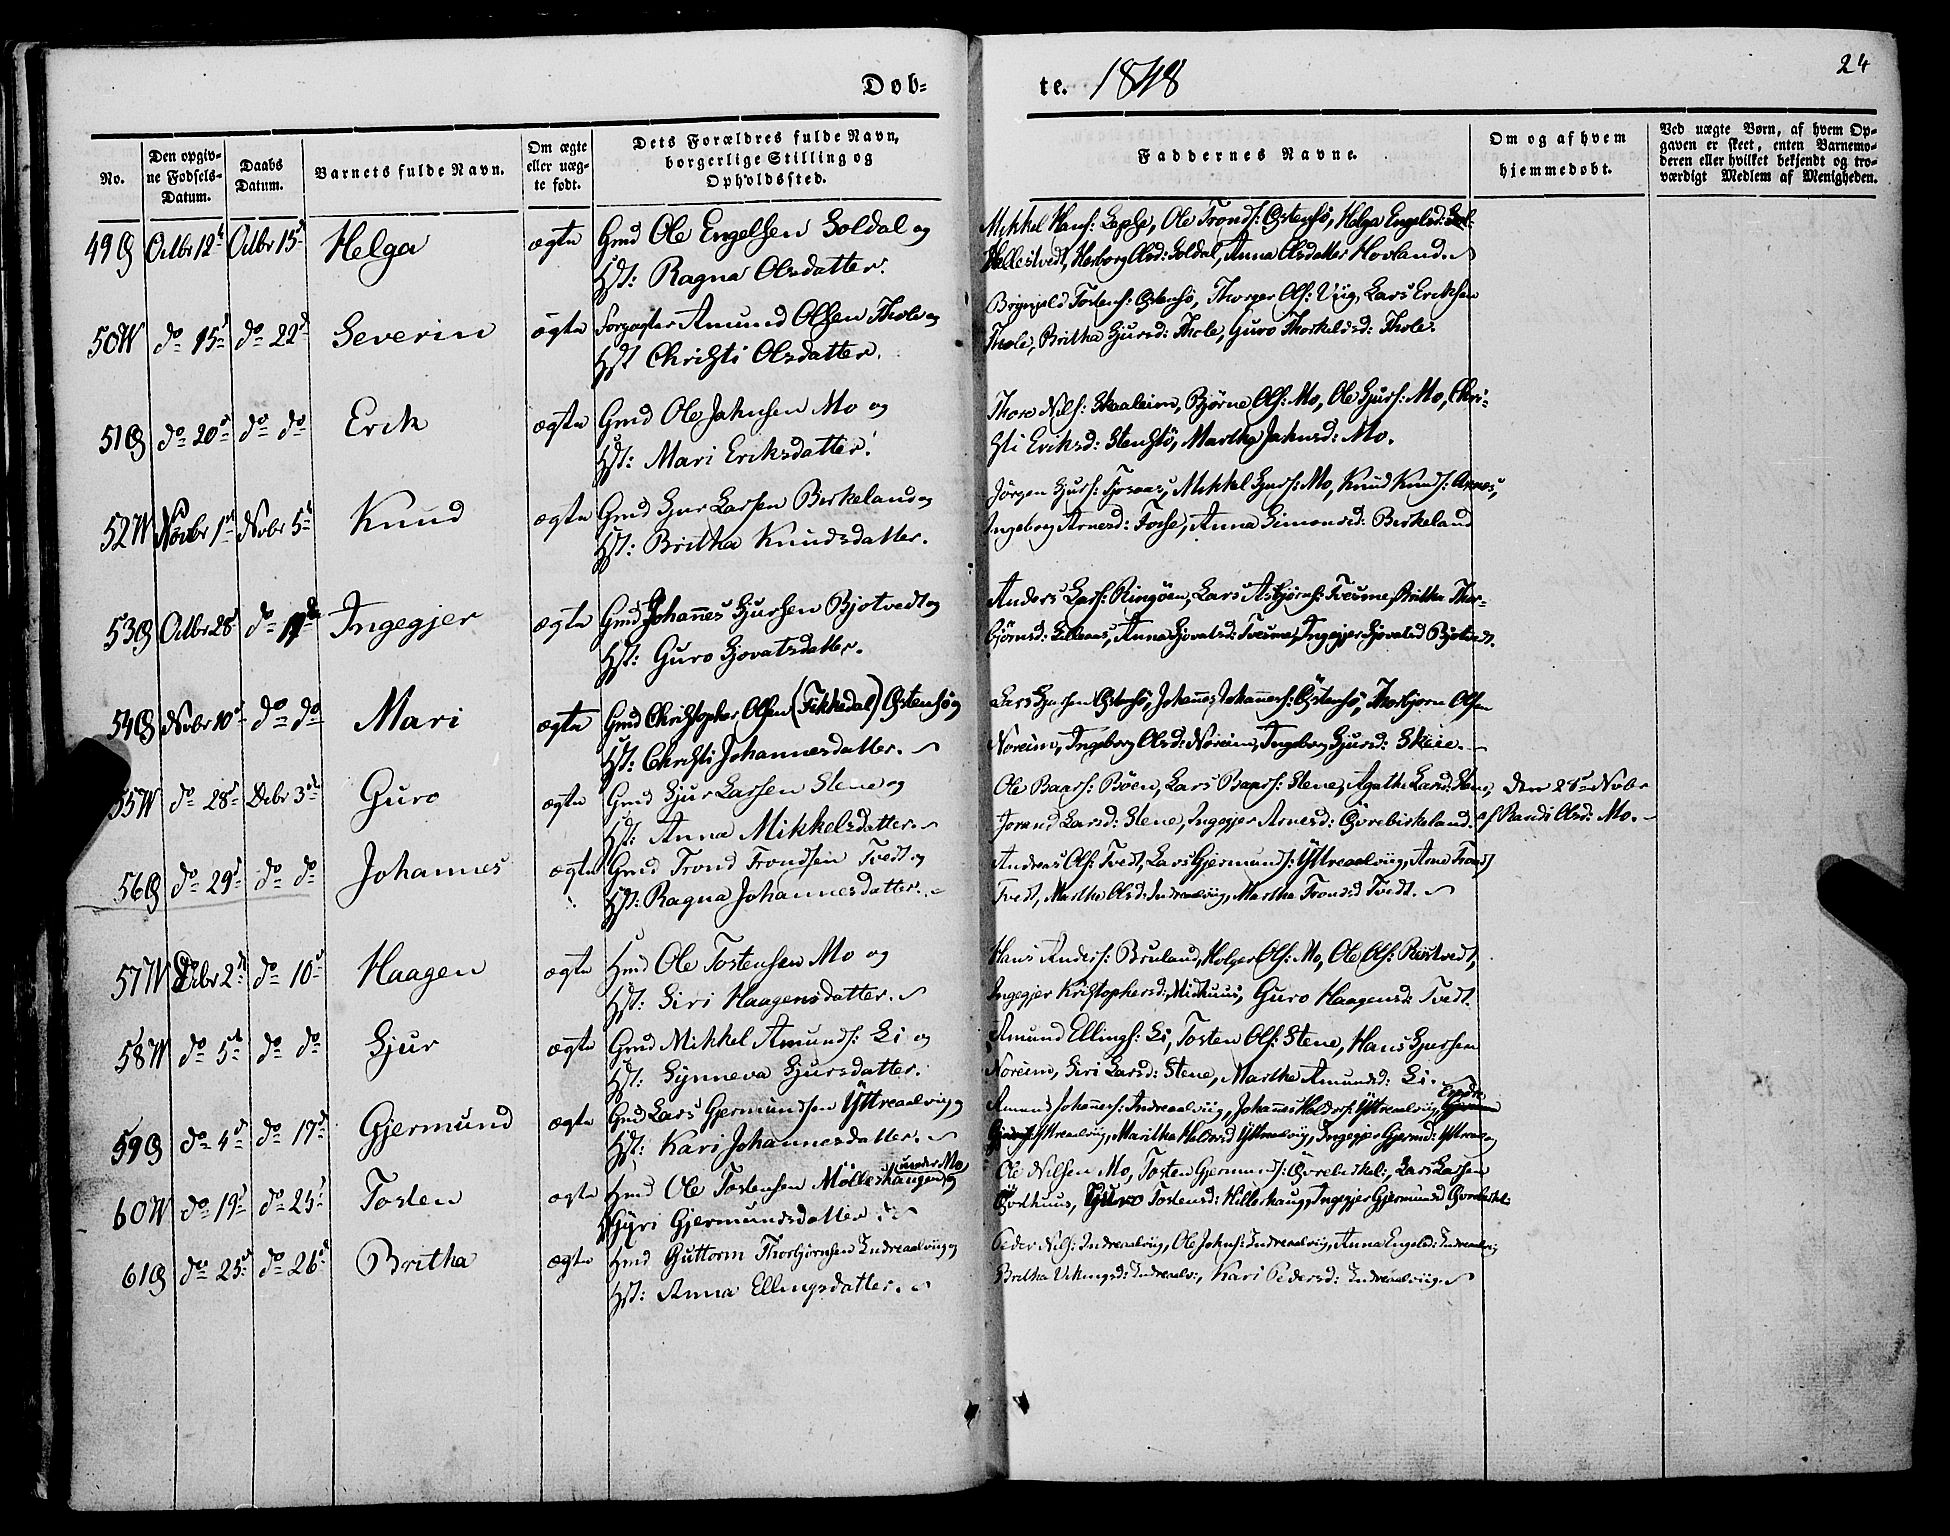 Døb=
te. 1848
24
No.
Den opgiv=
ne Fødsels=
Datum.
Daabs
Datum.
Barnets fulde Navn.
Om ægte
eller uæg=
te født.
Dets Forældres fulde Navn,
borgerlige Stilling og
Opholdssted.
Faddernes Navne.
Om og af hvem
hjemmedøbt.
Ved uægte Børn, af hvem Op=
gaven er skeet, enten Barnemo=
deren eller hvilket bekjendt og tro=
værdigt Medlem af Menigheden.
49 Octbr 12t Octbr 15d Helga ægte Gmd Ole Engelsen Soldal og
Hst: Ragna Olsdatter.
Mikkel Hans: Lepsø, Ole Tronds: Østensø, Helga Engelsd:
Hellestvedt, Herborg Olsd: Soldal, Anna Olsdatter Hovland.
50W do 15d do 22d Severin ægte Amund Olsen Thole og
Hst Christi Olsdatter.
Tostens: Østensø, Thorger Ols: Viig, Lars Eriksen
Thole, Britha Sjursd: Thole, Guro Thorkelsd: Thole.
51 do 20d do do Erik ægte Gmd Ole Johnsen Mo og
Hst: Mari Eriksdatter.
Thore Nils: Skaaleim, Bjørne Ols: Mo, Ole Sjurs: Mo, Chri=
sti Eriksd: Stenstø, Martha Johnsd: Mo.
52W Novbr 1st Nvbr 5t Knud ægte Gmd Sjur Larsen Birkeland og
Hst: Britha Knudsdatter.
Jørgen Sjurs: Fosaas, Mikkel Sjurs: Mo, Knud Knuds: Aanes,
Ingeborg Arnesd: Fosse, Anna Simonsd: Birkeland
53 Octbr 28 do Ingegjer ægte Gmd Johannes Sjursen Bjotvedt og
Hst: Guro Sjovatsdatter.
Anders Lars: Ringøen, Lars Asbjørns: Tveime, Britha Thor=
bjørnsd: Lilleaas, Anna Sjovatsd: Tveime, Ingegjer Sjovatsd Bjotvedt.
54 Nvbr 10d do do Mari ægte Gmd Christopher Olsen (Fikkedal) Østensø og
Hst: Christi Johannesdatter.
Lars Sjursen Østensø, Johannes Johanness: Østensø, Thorbjørn Olsen
Noreim, Ingeborg Olsd: Noreim, Ingeborg Sjursd: Skeie.
55W do 28d Dcbr 3d Guro ægte Gmd Sjur Larsen Stene og
Hst: Anna Mikkelsdatter.
Ole Baars: Bøen, Lars Baars: Stene, Agatha Larsd: Stene,
Larsd: Stene, Ingegjer Arnesd: Øvrebirkeland.
Den 28d Nvbr
af Randi Olsd: Mo.
56 do 29d do do Johannes ægte Gmd Trond Trondsen Tvedt og
Hst: Ragna Johannesdatter.
Andreas Ols: Tvedt, Lars Gjermunds: Yttreaalviig, Arne Tronds
Tvedt, Martha Olsd: Indreaalviig, Martha Trondsd Tvedt.
57W Decbr 2d do 10d Haagen ægte Hmd Ole Tostensen Mo og
Hst: Siri Haagensdatter.
Hans Anders: Bruland, Holger Ols: Mo, Ole Ols: Rostvedt,
Ingegjer Kristophersd: Midhuus, Guro Haagensd: Tvedt.
58W do 5t do do Sjur ægte Gmd Mikkel Amunds: Li og
Hst: Synneva Sjursdatter.
Amund Ellings: Li, Tosten Ols: Stene, Hans Sjursen
Noreim, Siri Larsd: Stene, Martha Amundsd: Li.
59 do 4d do 17d Gjermund ægte Gmd Lars Gjermundsen Yttreaalviig og
Hst: Kari Johannesdatter.
Amund Johanness: Indreaalviig, Johannes Haldors: Yttreaalviig,
Yttreaalviig, Maritha Yttreaalviig, Ingegjer Gjermd:
60W do 19d do 25d Tosten ægte Hmd Ole Tostensen Mölleshaugen under Mo og
Gyri Gjermundsdatter
Ole Nilsen Mo, Tosten Gjermunds: Øvrebirkel:, Lars Larsen
Guro Tostensd: Hilleshaug, Ingegjer Gjermundsd
61 do 25d do 26d Britha ægte Hmd Guttorm Thorbjørnsen Indreaalviig og
Hst: Anna Ellingsdatter.
Peder Nils: Indreaalviig, Ole Johns: Indreaalviig, Anna Engelsd: Indreaalviig
Britha Vikingsd: Indreaalv:, Kari Pedersd: Indreaalviig.